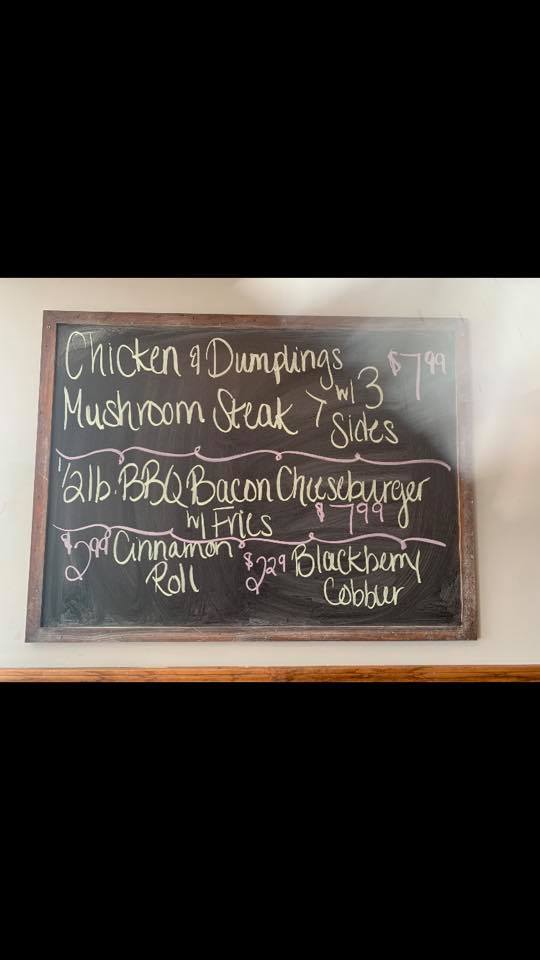 Chicken & Dumplings $7.99
Mushroom Steak > w/ 3 Sides
1/2lb. BBQ Bacon Cheeseburger
w/ Fries $7.99
$2.99 Cinnamon Roll
$2.29 Blackberry Cobbler